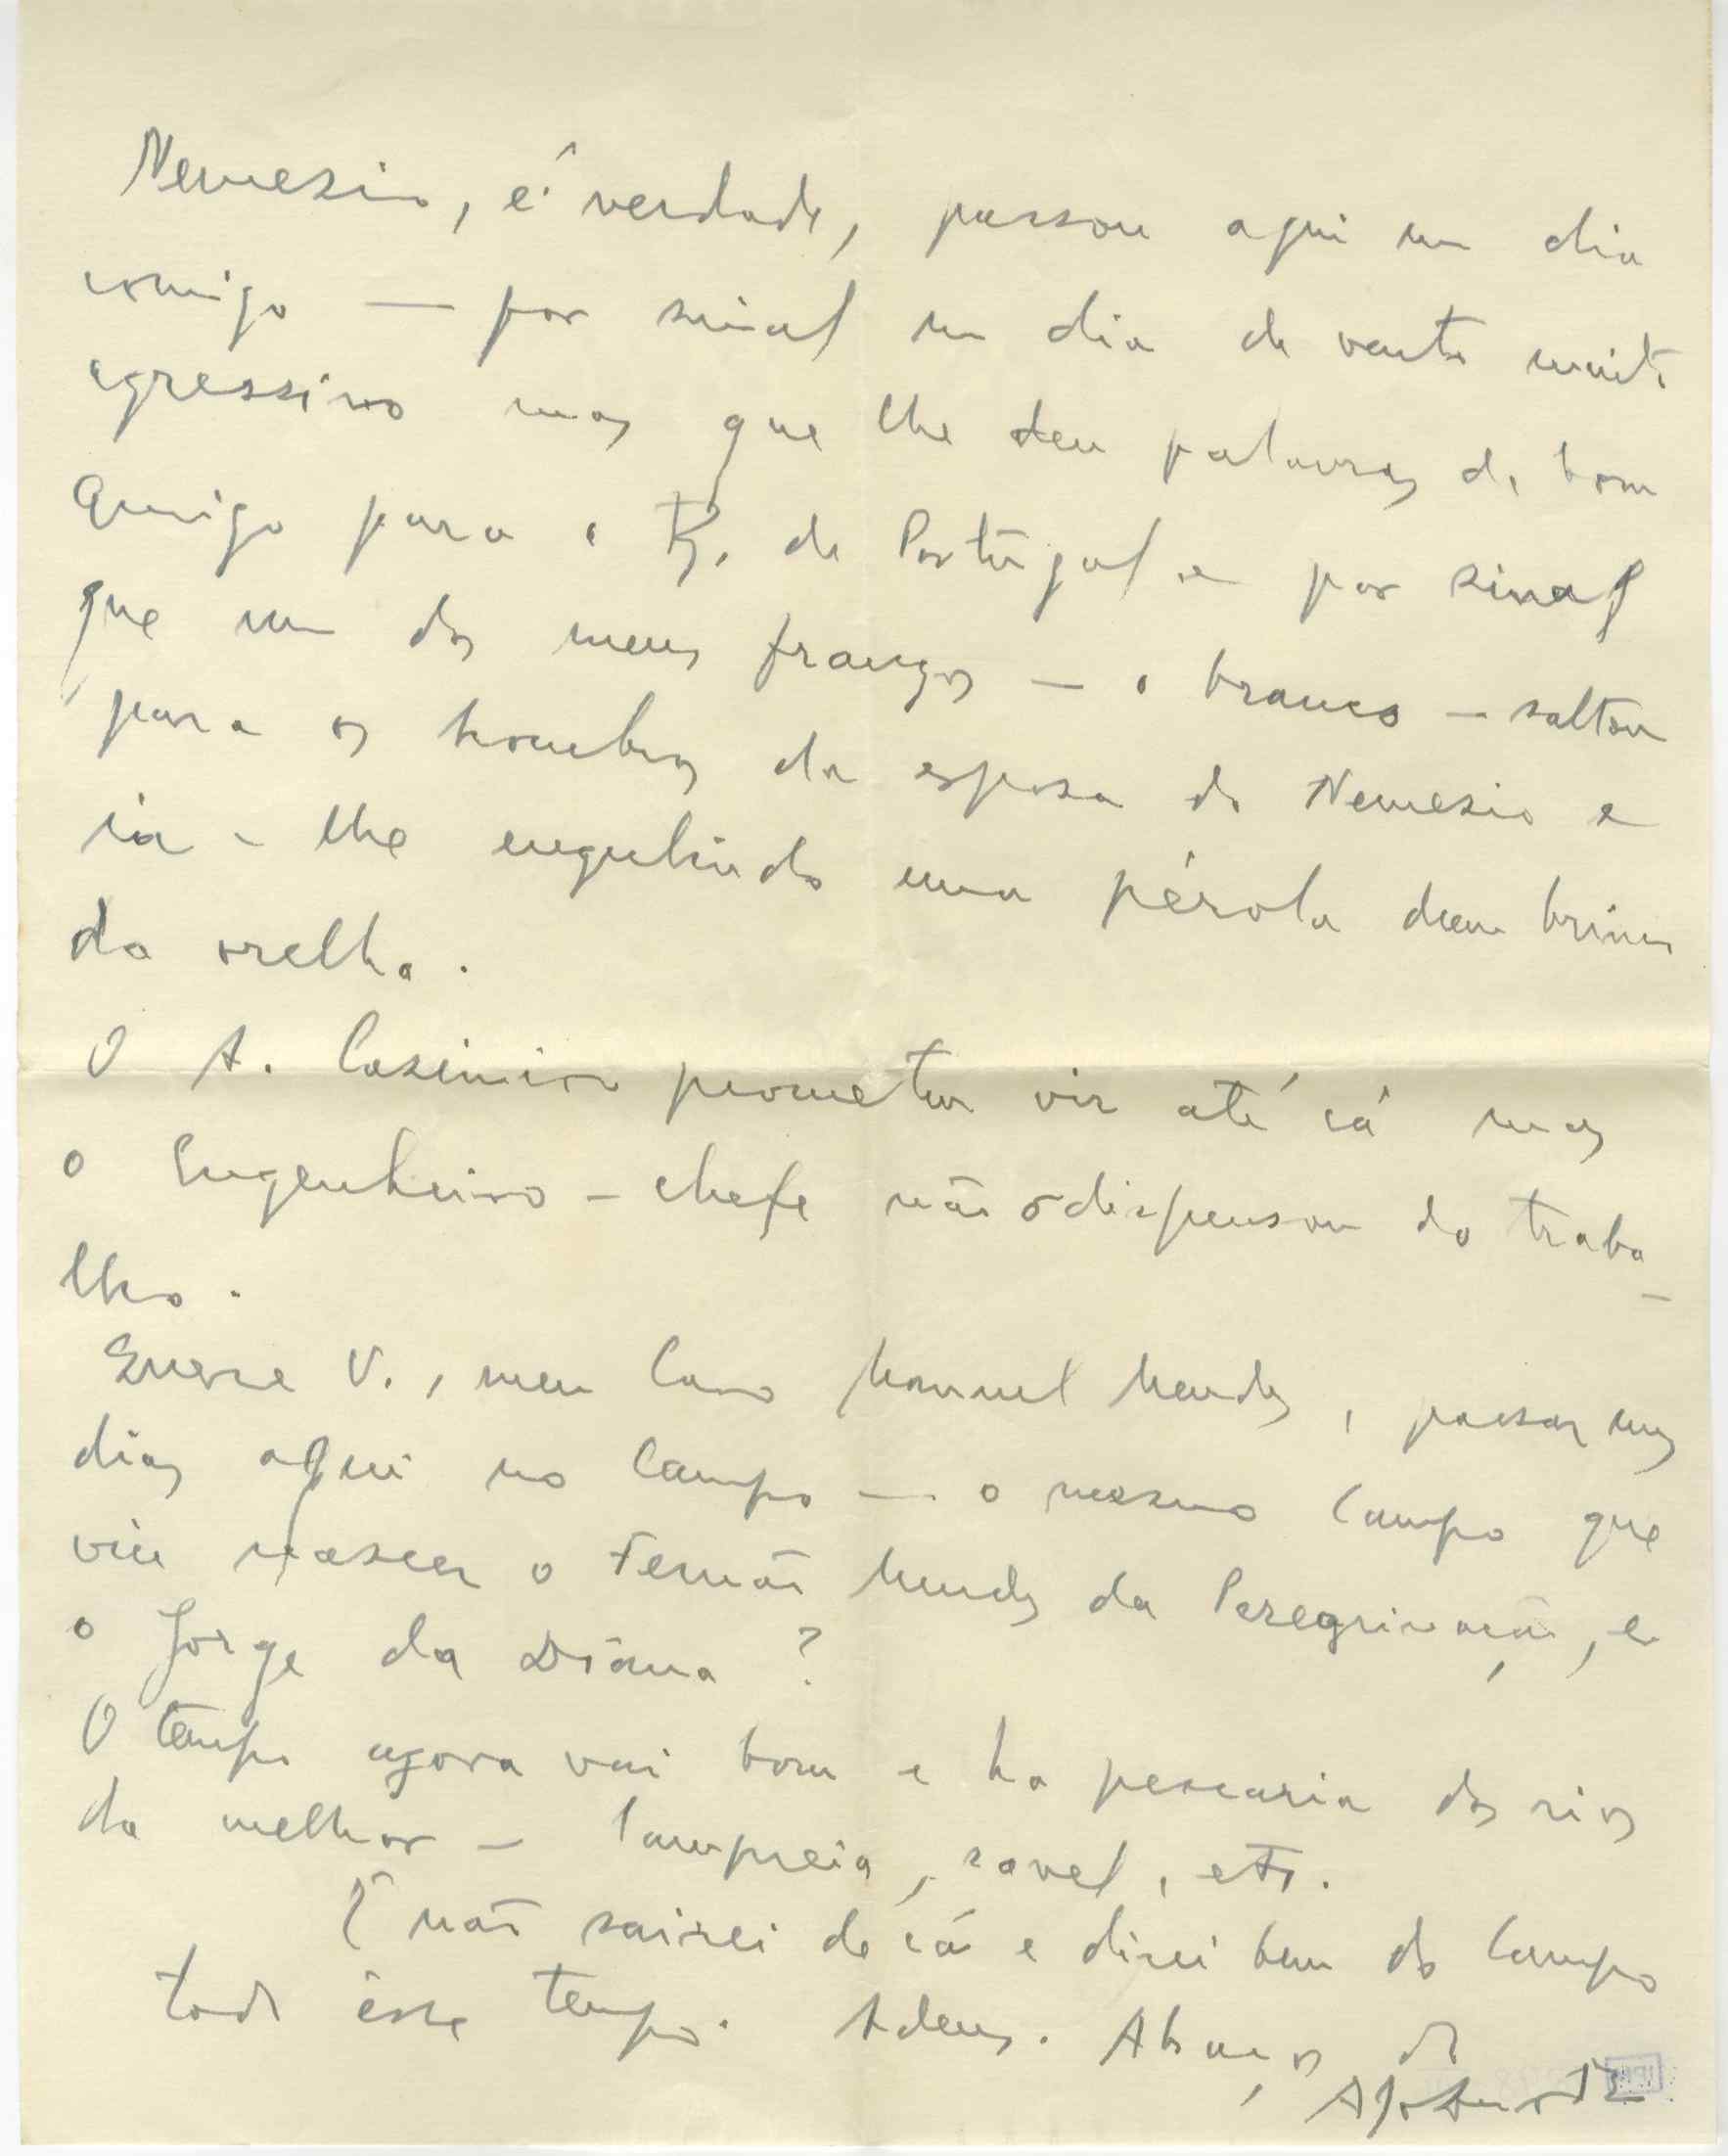 Nemesio, é verdade, passou aqui um dia
comigo — por sinal um dia de vento muito
agressivo mas que lhe deu palavras de bom
Amigo para o R. de Portugal e por sinal
que um dos meus frangos — o branco — saltou
para os hombros da esposa do Nemesio e
ia-lhe engulindo uma pérola dum brinco
da orelha.
O A. Casimiro prometeu vir até cá mas
o Engenheiro-chefe não o dispensou do traba-
lho.
Quere V., meu Caro Manuel Mendes, passar uns
dias aqui no Campo — o mesmo Campo que
viu nascer o Fernão Mendes da Peregrinação, e
o Jorge da Diana?
O tempo agora vai bom e ha pescaria dos rios
da melhor — lampreia, savel, etc.
E não sairei de cá e direi bem do Campo
todo êsse tempo. Adeus. Abraços de